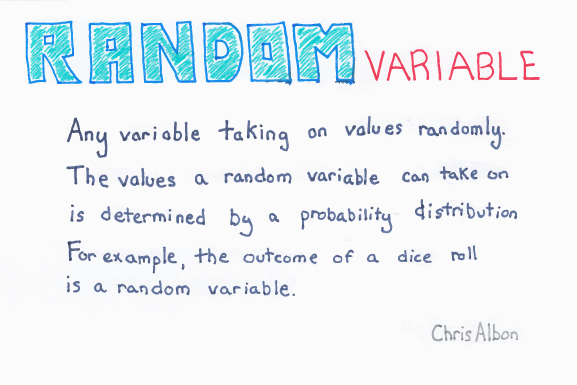 RANDOM VARIABLE
Any variable taking on values randomly.
The values a random variable can take on
is determined by a probability distribution
For example, the outcome of a dice roll
is a random variable.
Chris Albon